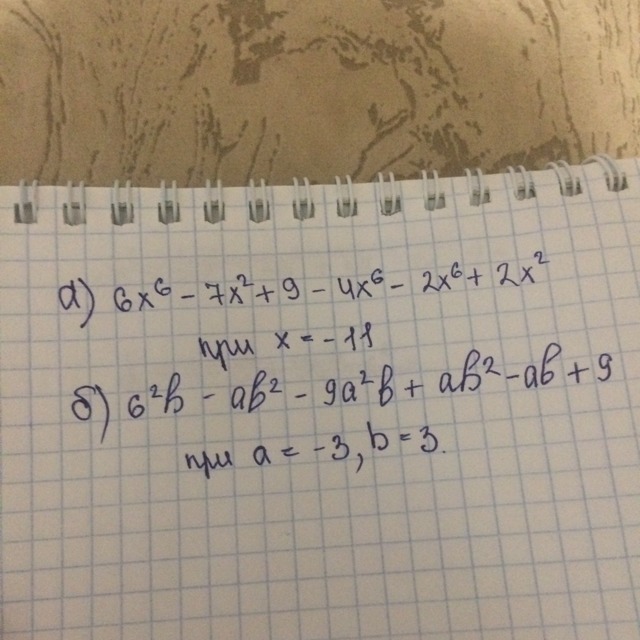 а) 6x⁶ - 7x² + 9 - 4x⁶ - 2x⁶ + 2x²
при x = -11
б) 6²b - ab² - 9a²b + ab² - ab + 9
при a = -3, b = 3.